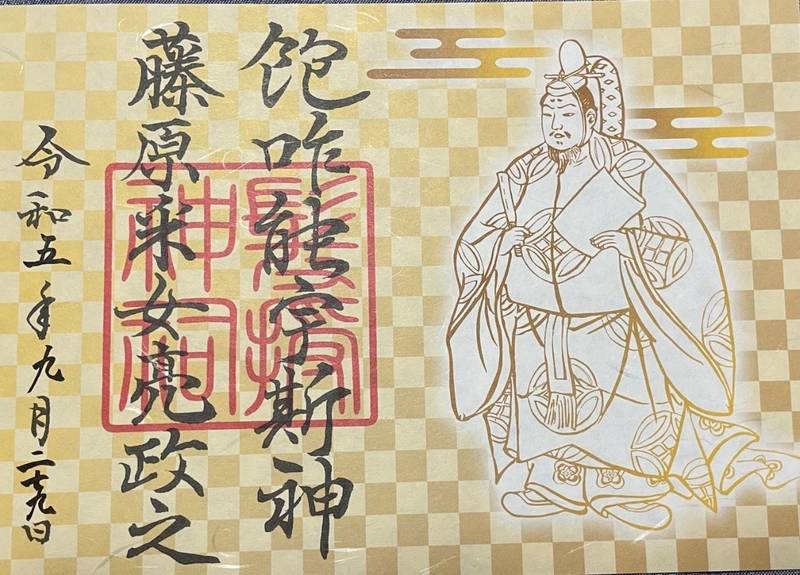 飽咋能宇斯神
藤原采女亮政之
令和五年九月二十九日
髪授
神祠